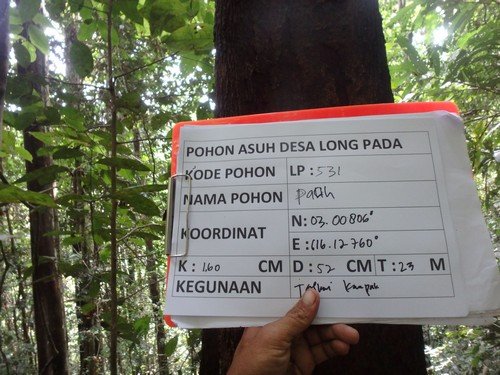 POHON ASUH DESA LONG PADA
KODE POHON LP : 531
NAMA POHON
KOORDINAT N: 03.00806°
E : 116.12760°
K : 160 CM D : 52 CM T : 23 M
KEGUNAAN